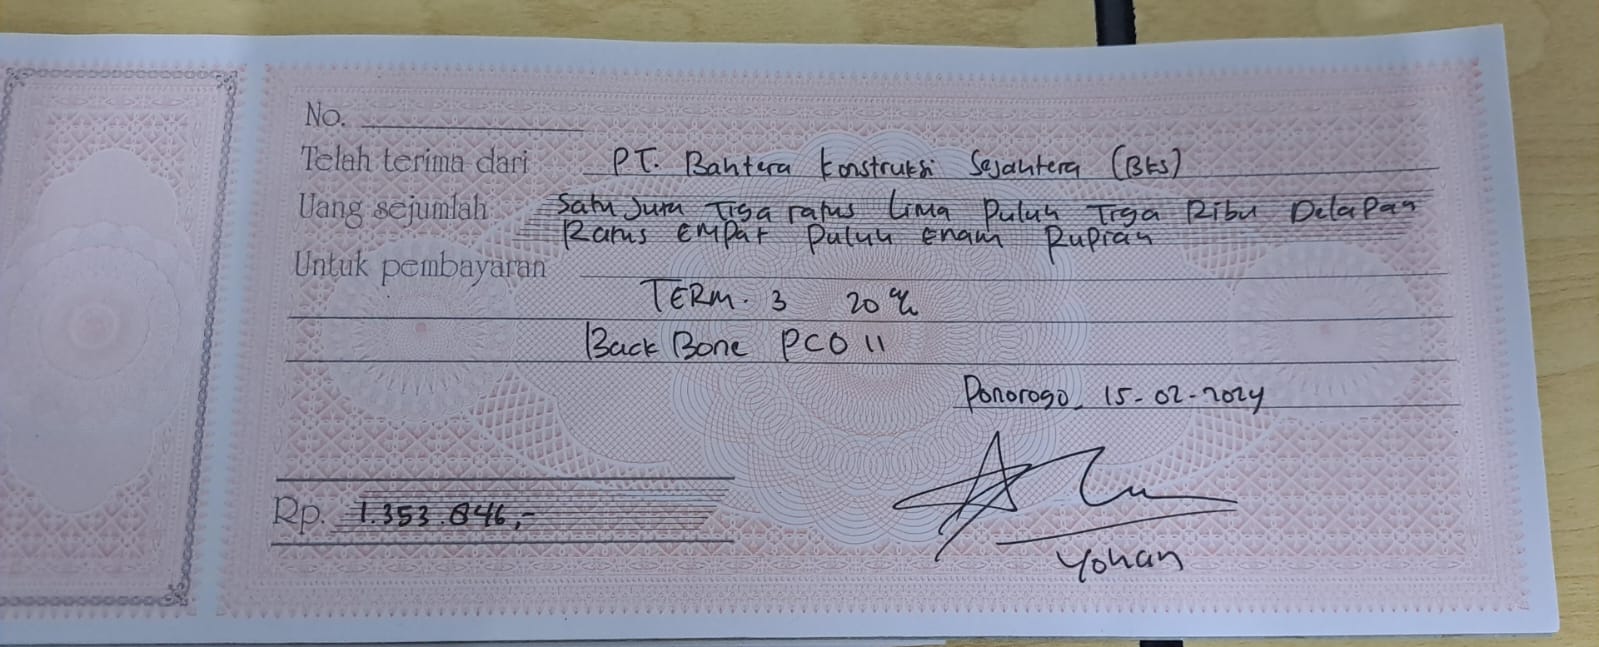 No.
Telah terima dari PT. Bahtera Konstruksi Sejahtera (BKS)
Uang sejumlah Satu Juta Tiga ratus Lima Puluh Tiga Ribu Delapan
Ratus Empat Puluh Enam Rupiah
Untuk pembayaran
TERM. 3 20%
Back Bone PCO 11
Ponorogo, 15-02-2024
Rp. 1.353.846,-
Yohan